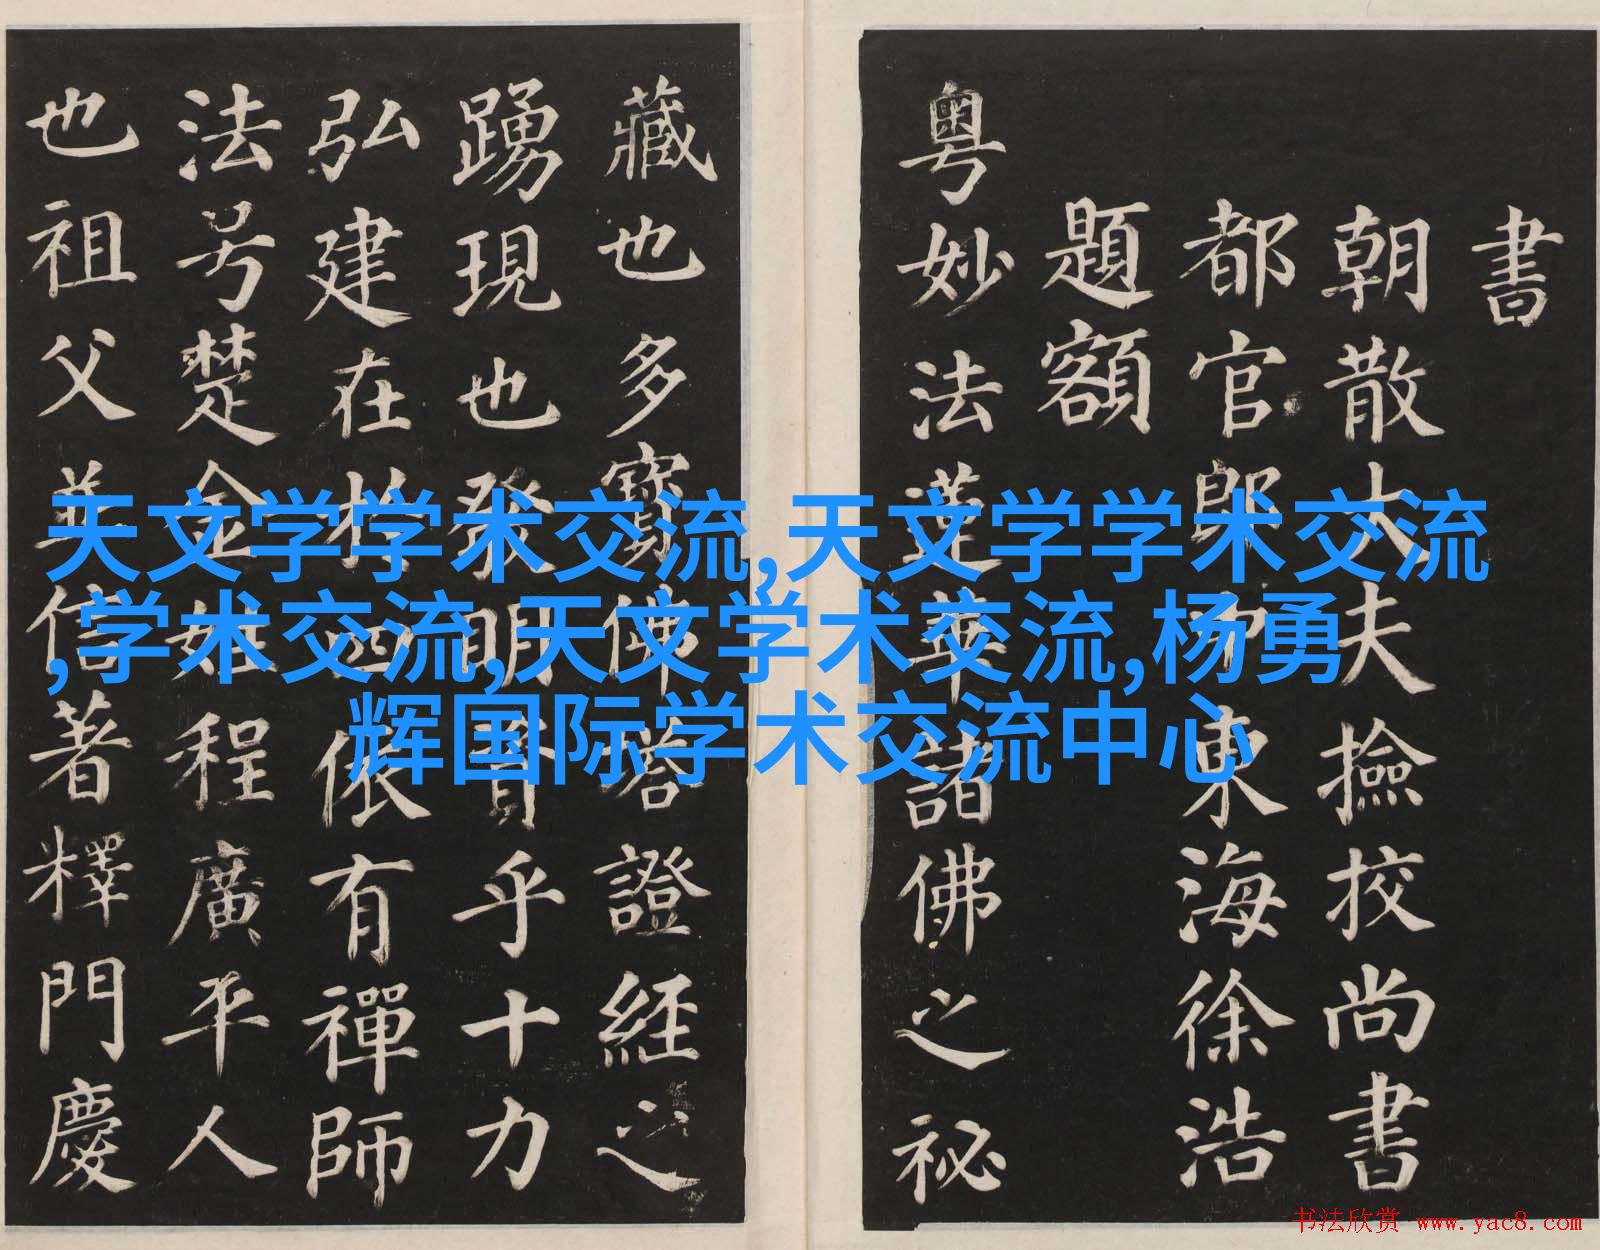 書
朝散大夫撿挍尚書
都官郎中東海徐浩
題額
粵妙法蓮華諸佛之祕
藏也多寶佛塔證經之
踴現也發明資乎十力
弘建在於四依有禪師
法号楚金姓程廣平人
也祖父並信著釋門慶
天文学学术交流,天文学学术交流
,学术交流,天文学术交流,杨勇
辉国际学术交流中心
书法欣赏 www.yac8.com